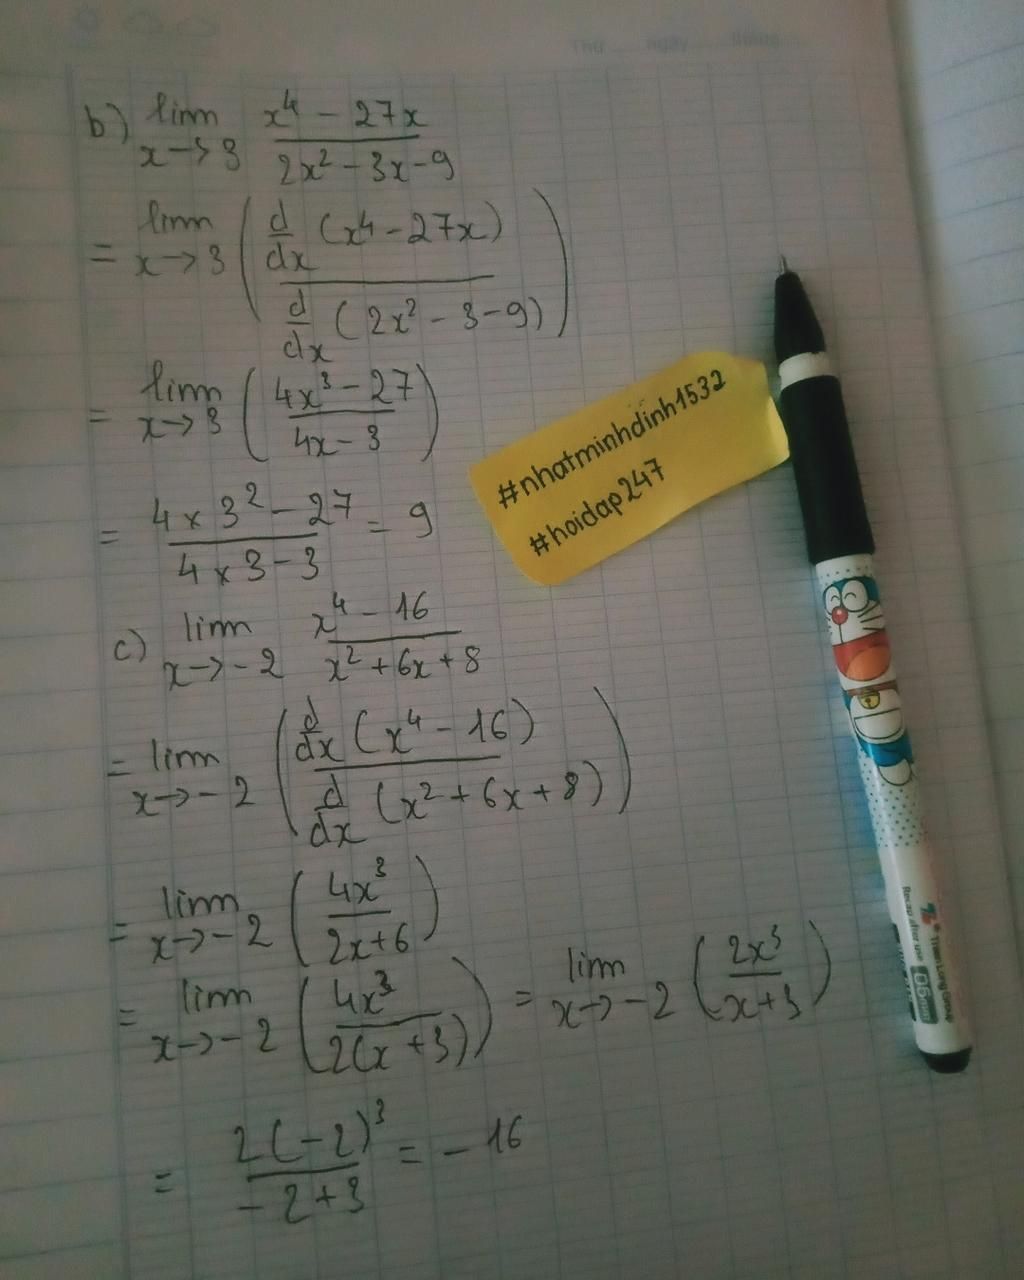 Thứ ..... ngày ..... tháng .....
b) lim x→3 (x⁴ - 27x)/(2x² - 3x - 9)
= lim x→3 ( (d/dx (x⁴ - 27x))/(d/dx (2x² - 3 - 9)) )
= lim x→3 ( (4x³ - 27)/(4x - 3) )
= (4 × 3² - 27)/(4 × 3 - 3) = 9
#nhatminhdinh1532
#hoidap247
c) lim x→-2 (x⁴ - 16)/(x² + 6x + 8)
= lim x→-2 ( (d/dx (x⁴ - 16))/(d/dx (x² + 6x + 8)) )
= lim x→-2 ( 4x³/(2x + 6) )
= lim x→-2 ( 4x³/(2(x + 3)) ) = lim x→-2 ( 2x³/(x + 3) )
= 2(-2)³/(-2 + 3) = -16
Thien Long Group